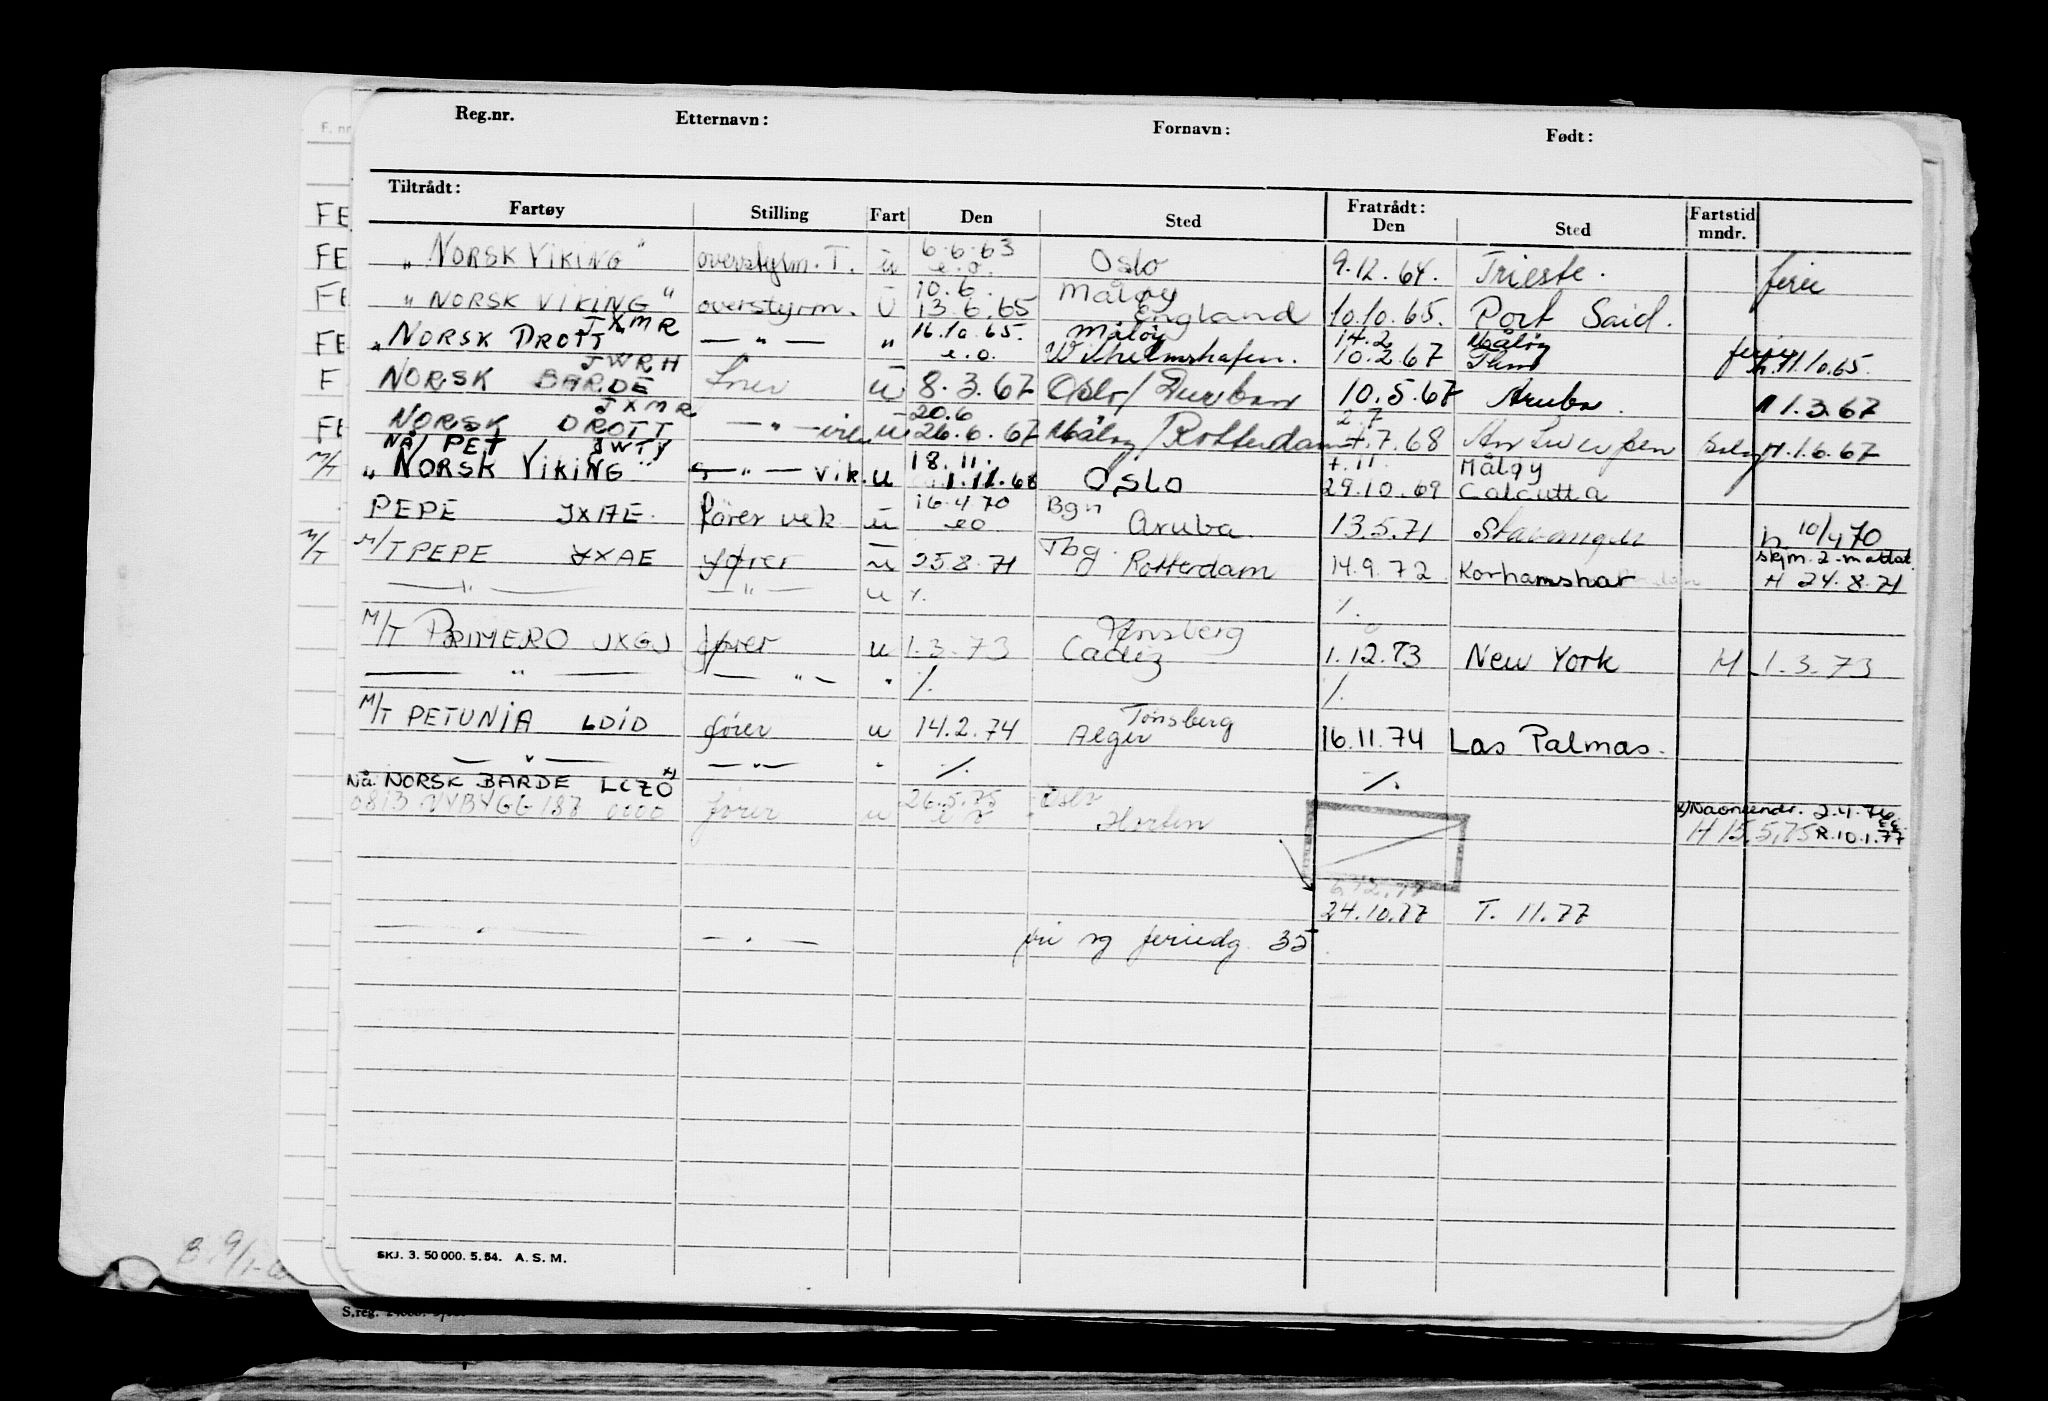 Reg.nr. Etternavn: Fornavn: Født:
Tiltrådt: Fratrådt:
Fartøy Stilling Fart Den Sted Den Sted Fartstid mndr.
6.6.63
„NORSK VIKING" overstyrm. T. u e.o. Oslo 9.12.64. Trieste. ferie
10.6. Måløy
„NORSK VIKING" overstyrm. U 13.6.65 England 10.10.65. Port Said.
JXMR 16.10.65. Måløy 14.2 Måløy
„NORSK DROTT — " — " e.o. Wilhelmshafen. 10.2.67 ferie h.11.10.65.
JWRH
NORSK BARDE u 8.3.67 Oslo/Durban 10.5.67 Aruba. H 1.3.67
JXMR 20.6 2.7
NORSK DROTT — " — u 26.6.67 Måløy/Rotterdam 7.68 Antwerpen H.1.6.67
Nå/ PET JWTY 18.11. +.11 Måløy
M/T „NORSK VIKING" — " — vik. u 1.11.68 Oslo 29.10.69 Calcutta
16.4.70 Bgn
PEPE JXAE. fører vik u eo Aruba. 13.5.71 Stavanger h. 10/4 70
Tbg. skjm. 2-mottat.
M/T M/T PEPE JXAE fører u 25.8.71 Rotterdam 14.9.72 Korhamshar H 24.8.71
— " — — " — u %. %.
Tønsberg
M/T PRIMERO JXGJ fører u 1.3.73 Cadiz 1.12.73 New York H 1.3.73
— " — — " — " %. %.
Tønsberg
M/T PETUNIA LDID fører u 14.2.74 Alger 16.11.74 Las Palmas.
— " — — " — " %. %.
Nå. NORSK BARDE LCZO x) 26.5.75 Oslo x) Navneendr. 2.4.76
0813 NYBYGG 187 0000 fører u Horten H 15.5.75 R.10.1.77
24.10.77 T. 11.77
— " — — " — fri og feriedg. 35
SKJ. 3. 50 000. 5. 64. A. S. M.
FE
FE
FE
FE
F
FE
S.reg.